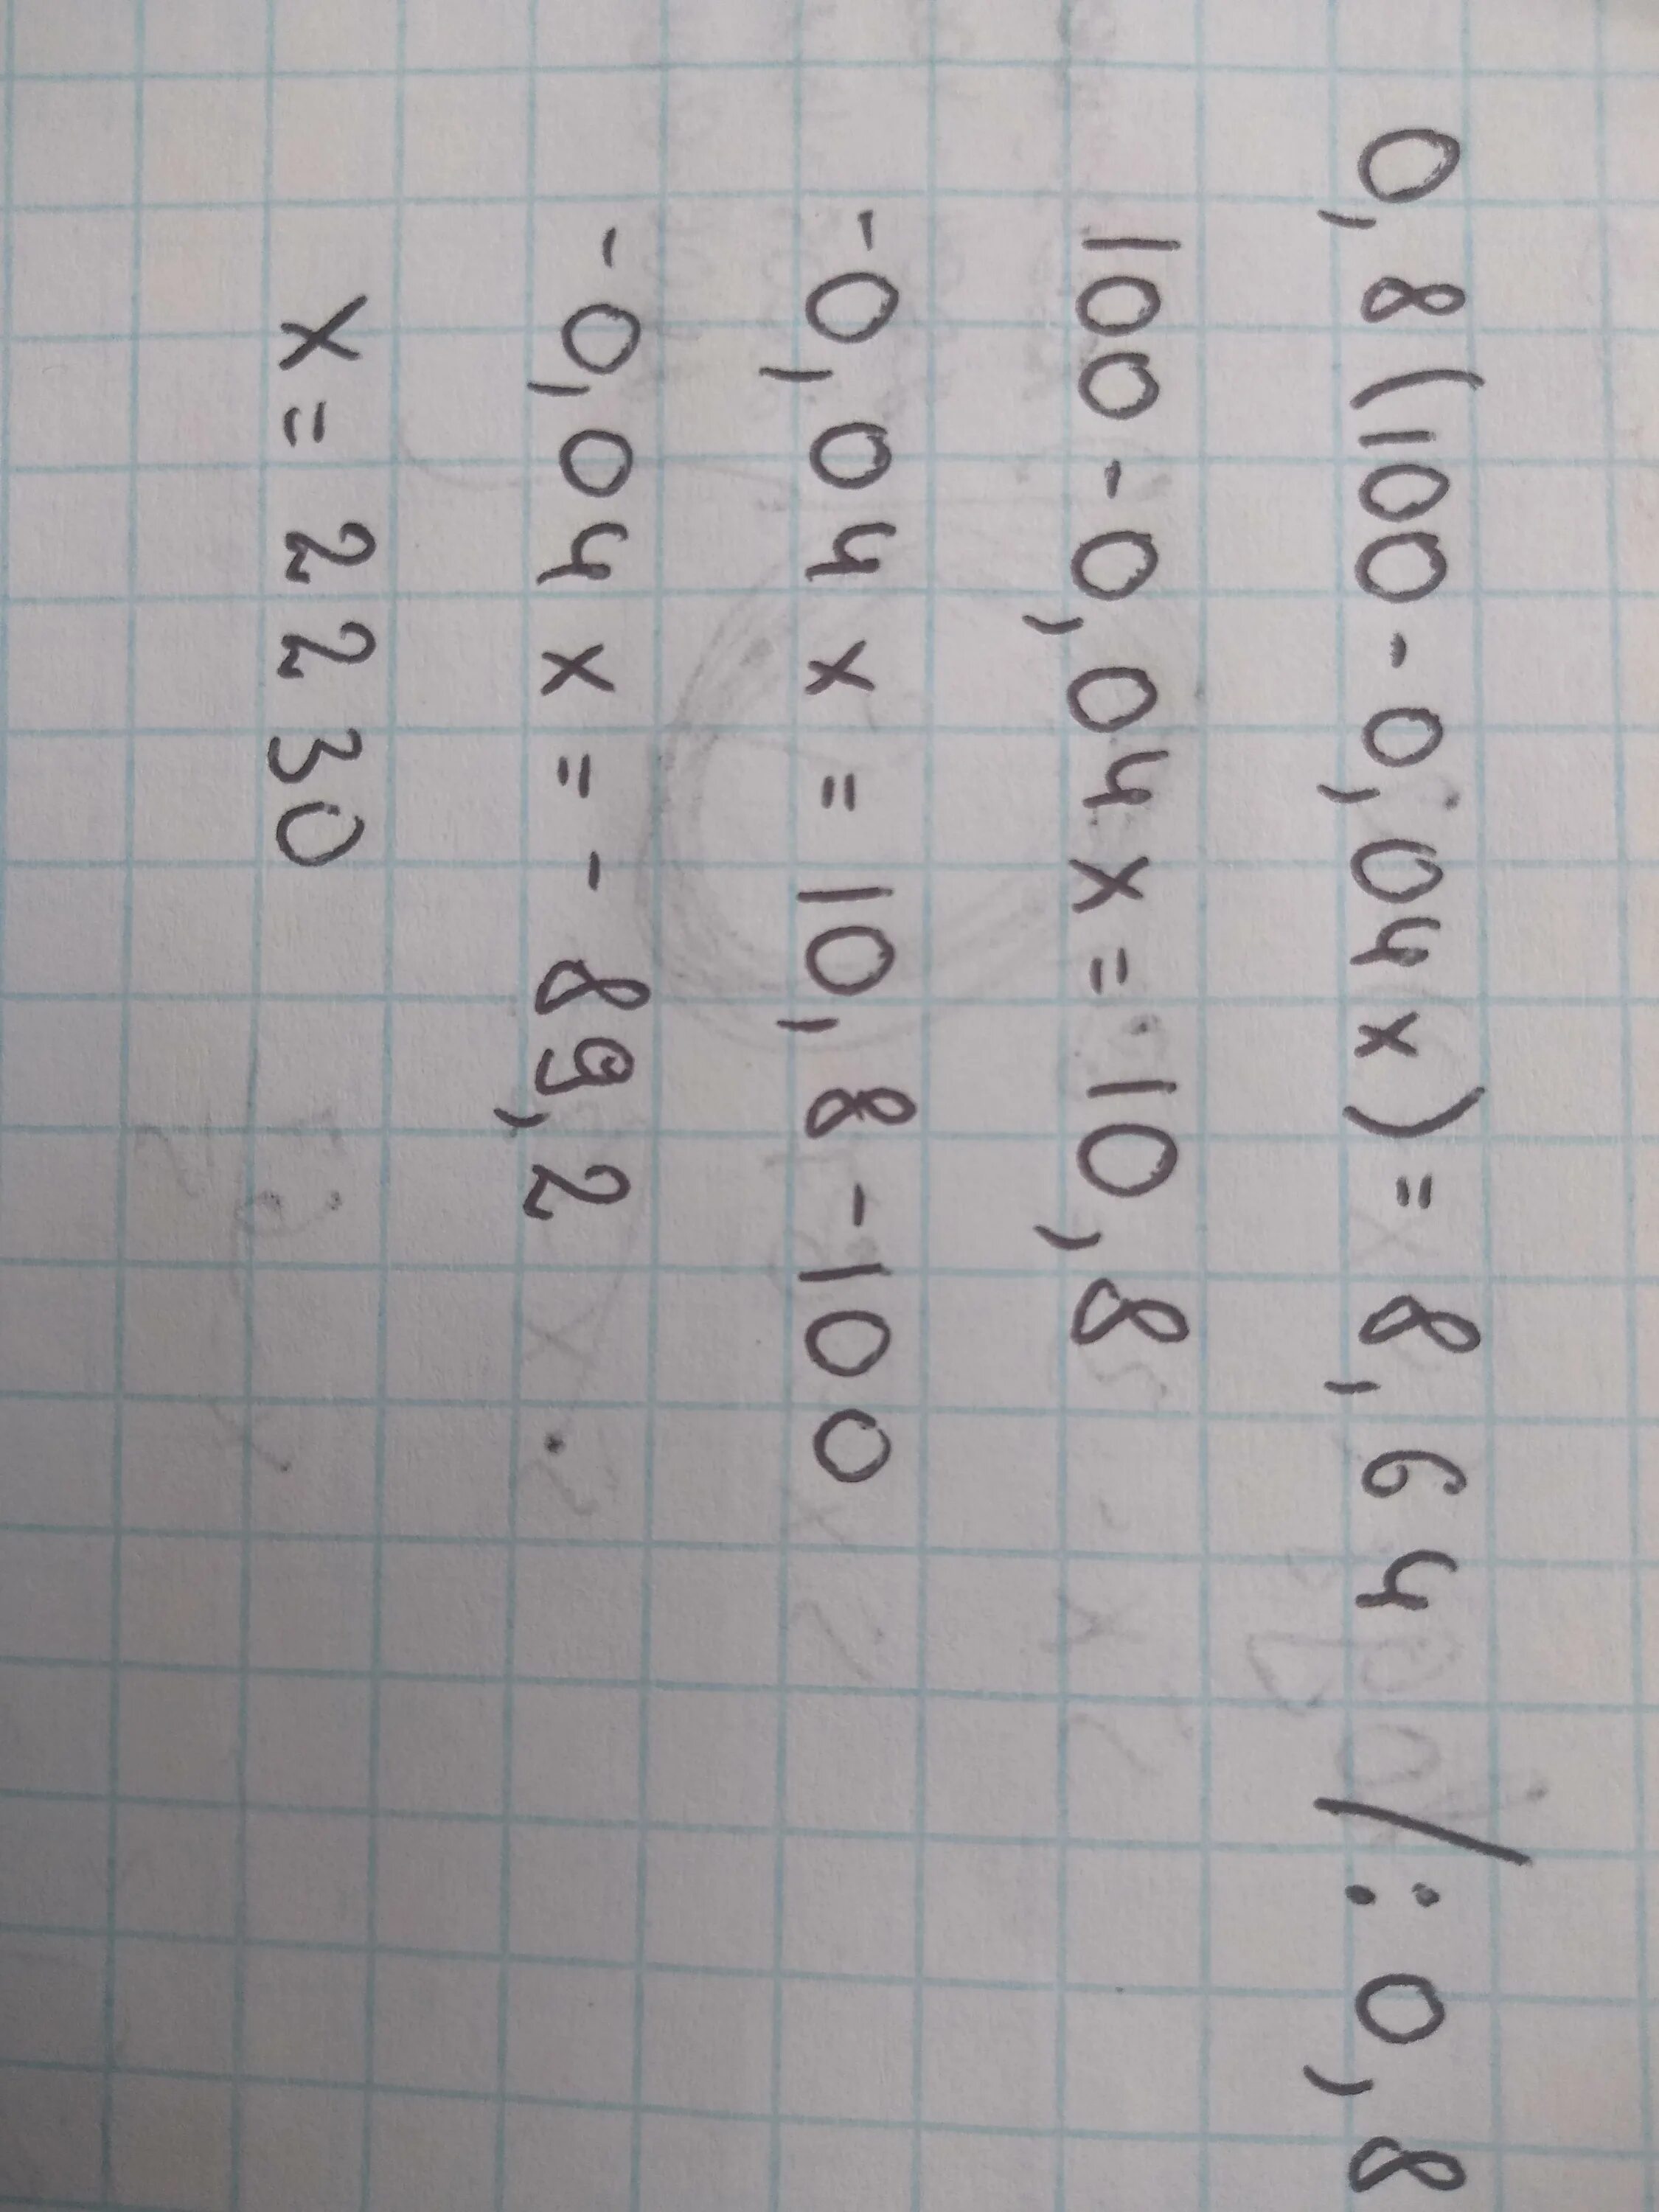 0,8(100-0,04x)=8,64 /:0,8
100-0,04x=10,8
-0,04x=10,8-100
-0,04x=-89,2
x=2230